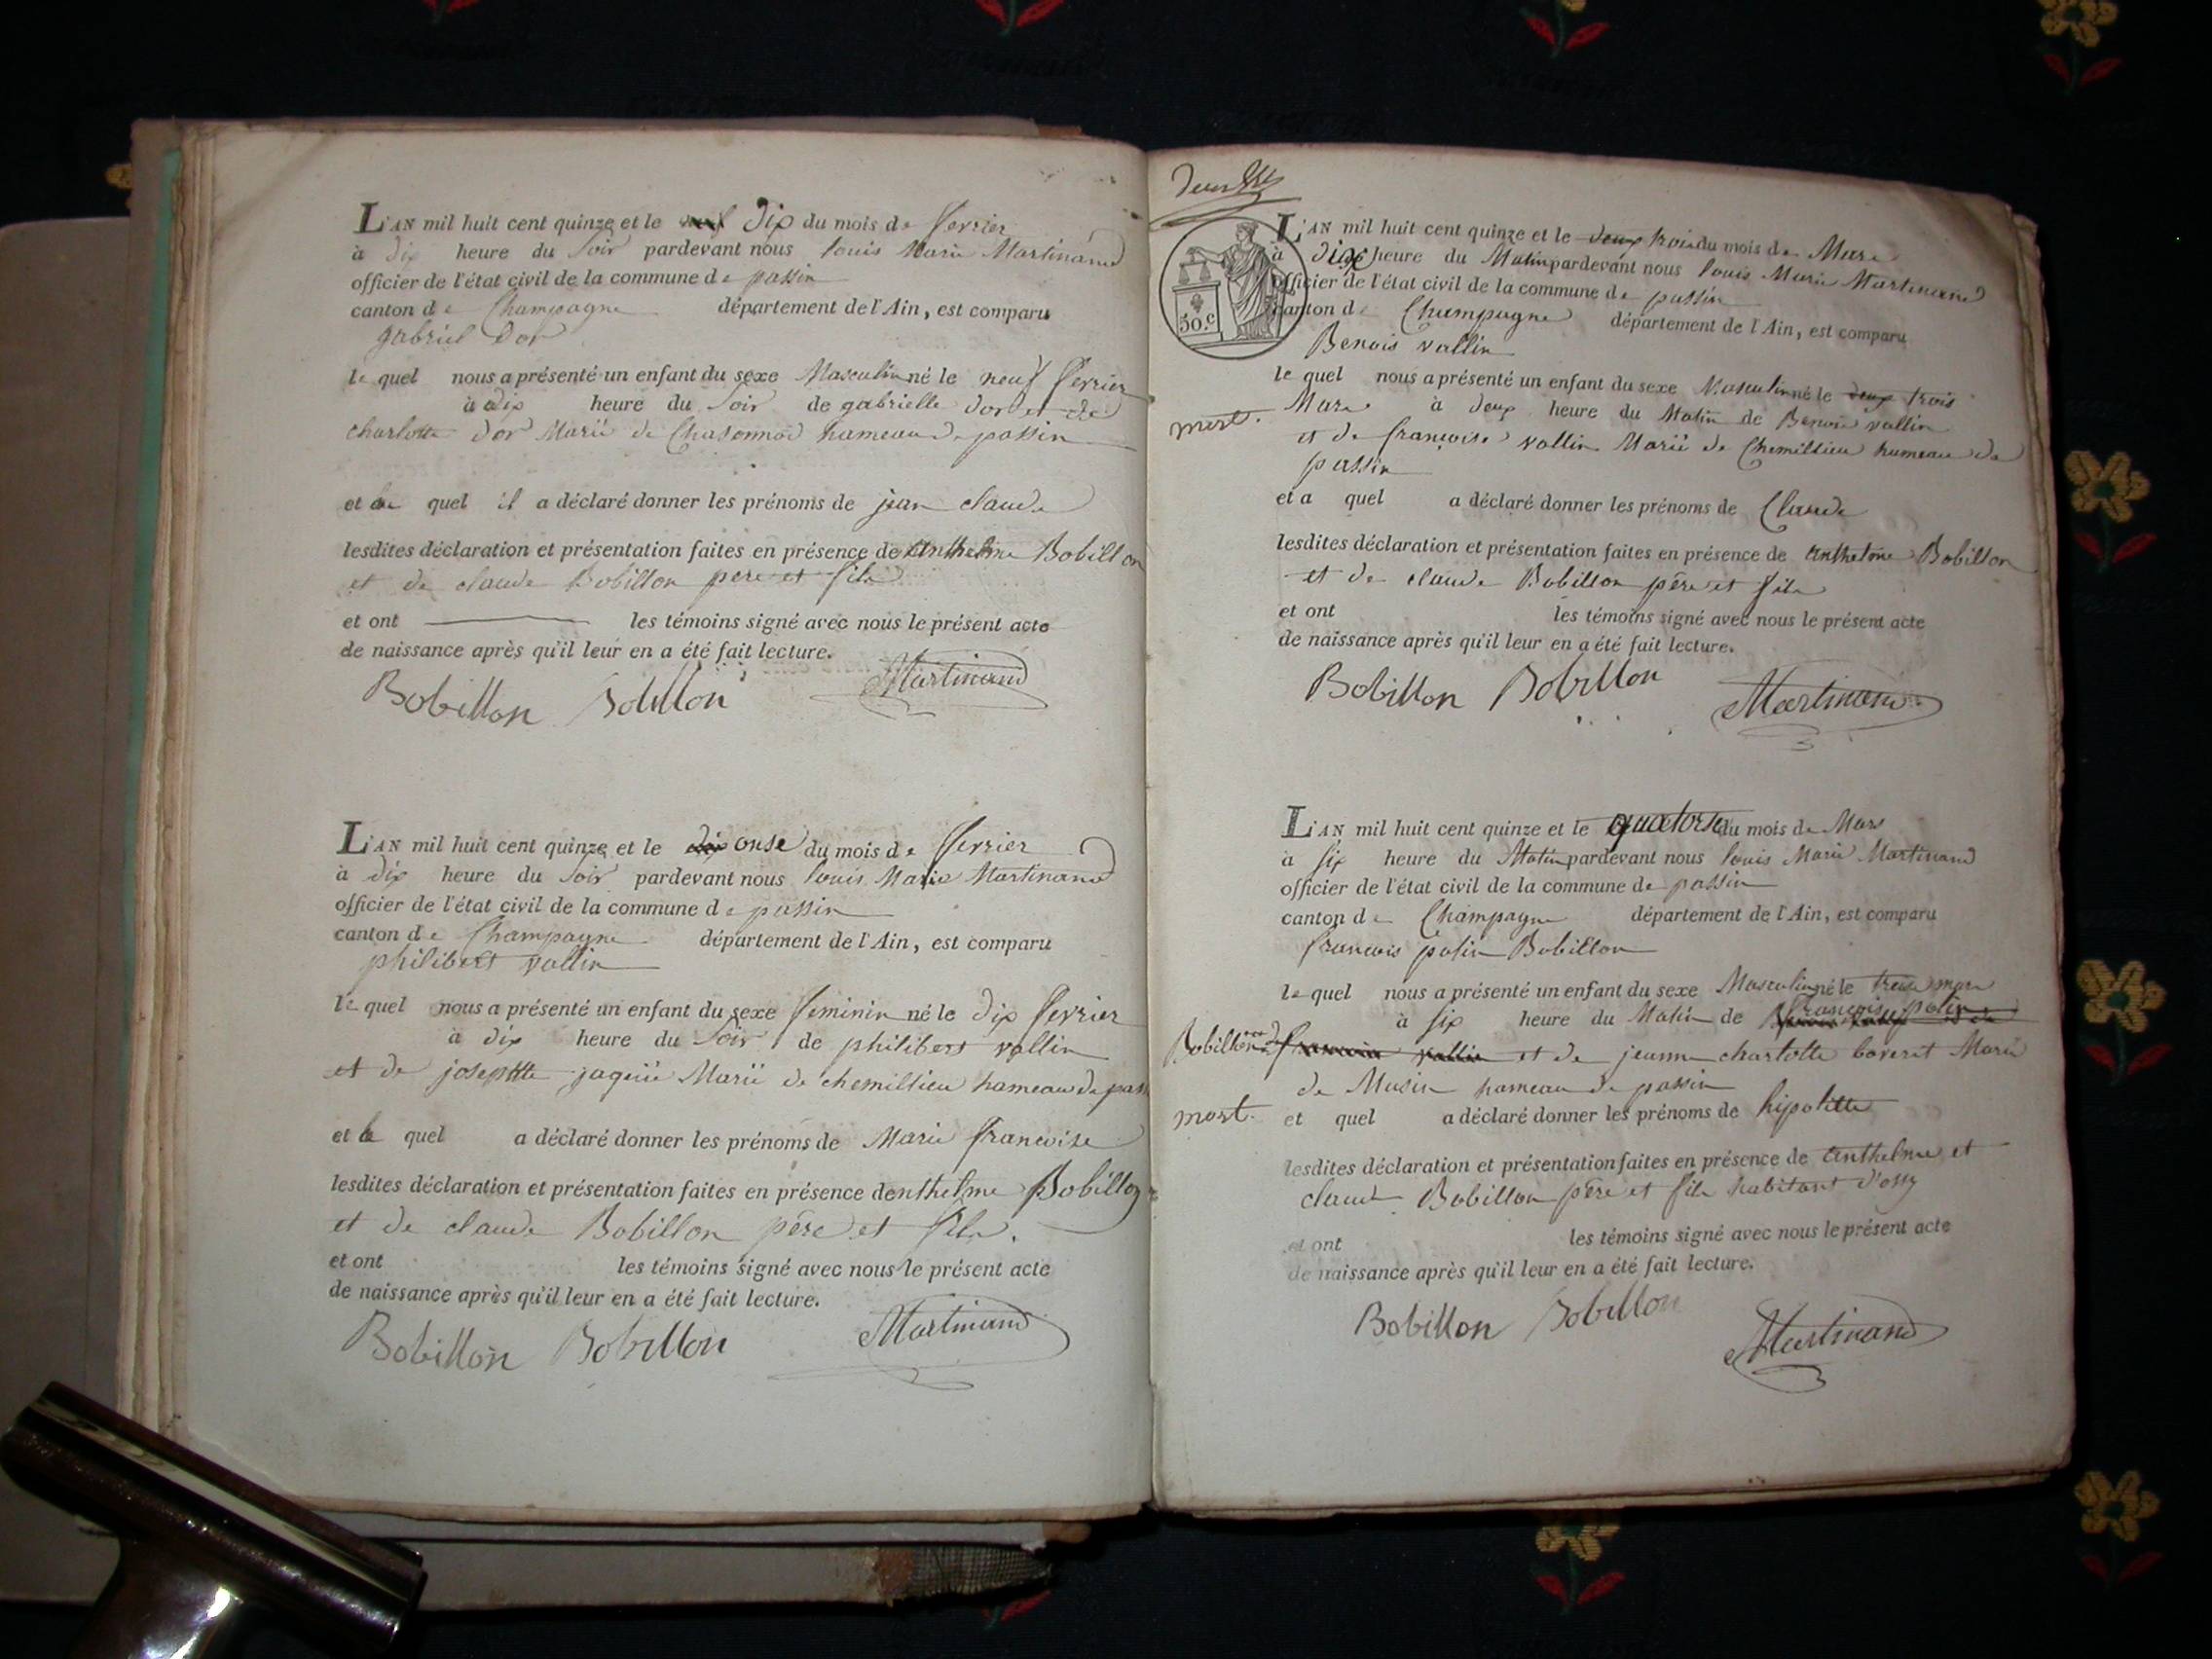 L'AN mil huit cent quinze et le neuf Dix du mois de fevrier
à dix heure du Soir pardevant nous louis Marie Martinand
officier de l'état civil de la commune de passin
canton de Champagne département de l'Ain, est comparu
gabriel Dor
le quel nous a présenté un enfant du sexe Masculin né le neuf fevrier
à dix heure du Soir de gabrielle dor et de
charlotte dor Marié de Chasonnod hameau de passin
et le quel il a déclaré donner les prénoms de jean claude
lesdites déclaration et présentation faites en présence de anthelme Bobillon
et de claude Bobillon pere et fils
et ont les témoins signé avec nous le présent acte
de naissance après qu'il leur en a été fait lecture.
Bobillon Bobillon Martinand
L'AN mil huit cent quinze et le dix onse du mois de fevrier
à dix heure du Soir pardevant nous louis Marie Martinand
officier de l'état civil de la commune de passin
canton de Champagne département de l'Ain, est comparu
philibert vallin
le quel nous a présenté un enfant du sexe feminin né le dix fevrier
à dix heure du Soir de philibert vallin
et de josephtte jaquii Marii de chemillieu hameau de pass
et le quel a déclaré donner les prénoms de Marie francoise
lesdites déclaration et présentation faites en présence denthelme Bobillon
et de claude Bobillon père et fils.
et ont les témoins signé avec nous le présent acte
de naissance après qu'il leur en a été fait lecture.
Bobillon Bobillon Martinand
50.c
L'AN mil huit cent quinze et le deux trois du mois de Mars
à dix heure du Matin pardevant nous louis Marie Martinand
officier de l'état civil de la commune de passin
canton de Champagne département de l'Ain, est comparu
Benois vallin
le quel nous a présenté un enfant du sexe Masculin né le deux trois
Mars à deux heure du Matin de Benois vallin
mort.
et de françoise vallin Marié de Chemillieu hameau de
passin
et a quel a déclaré donner les prénoms de Claude
lesdites déclaration et présentation faites en présence de anthelme Bobillon
et de claude Bobillon père et fils
et ont les témoins signé avec nous le présent acte
de naissance après qu'il leur en a été fait lecture.
Bobillon Bobillon Martinand
L'AN mil huit cent quinze et le quatorse du mois de Mars
à six heure du Matin pardevant nous louis Marie Martinand
officier de l'état civil de la commune de passin
canton de Champagne département de l'Ain, est comparu
francois polin Bobillon
le quel nous a présenté un enfant du sexe Masculin né le treise mars
à six heure du Matin de françois polin
Bobillon vallin et de jeanne charlotte boveret Marié
de Musin hameau de passin
mort. et quel a déclaré donner les prénoms de hipolitte
lesdites déclaration et présentation faites en présence de anthelme et
claude Bobillon père et fils habitant d'ossy
et ont les témoins signé avec nous le présent acte
de naissance après qu'il leur en a été fait lecture.
Bobillon Bobillon Martinand